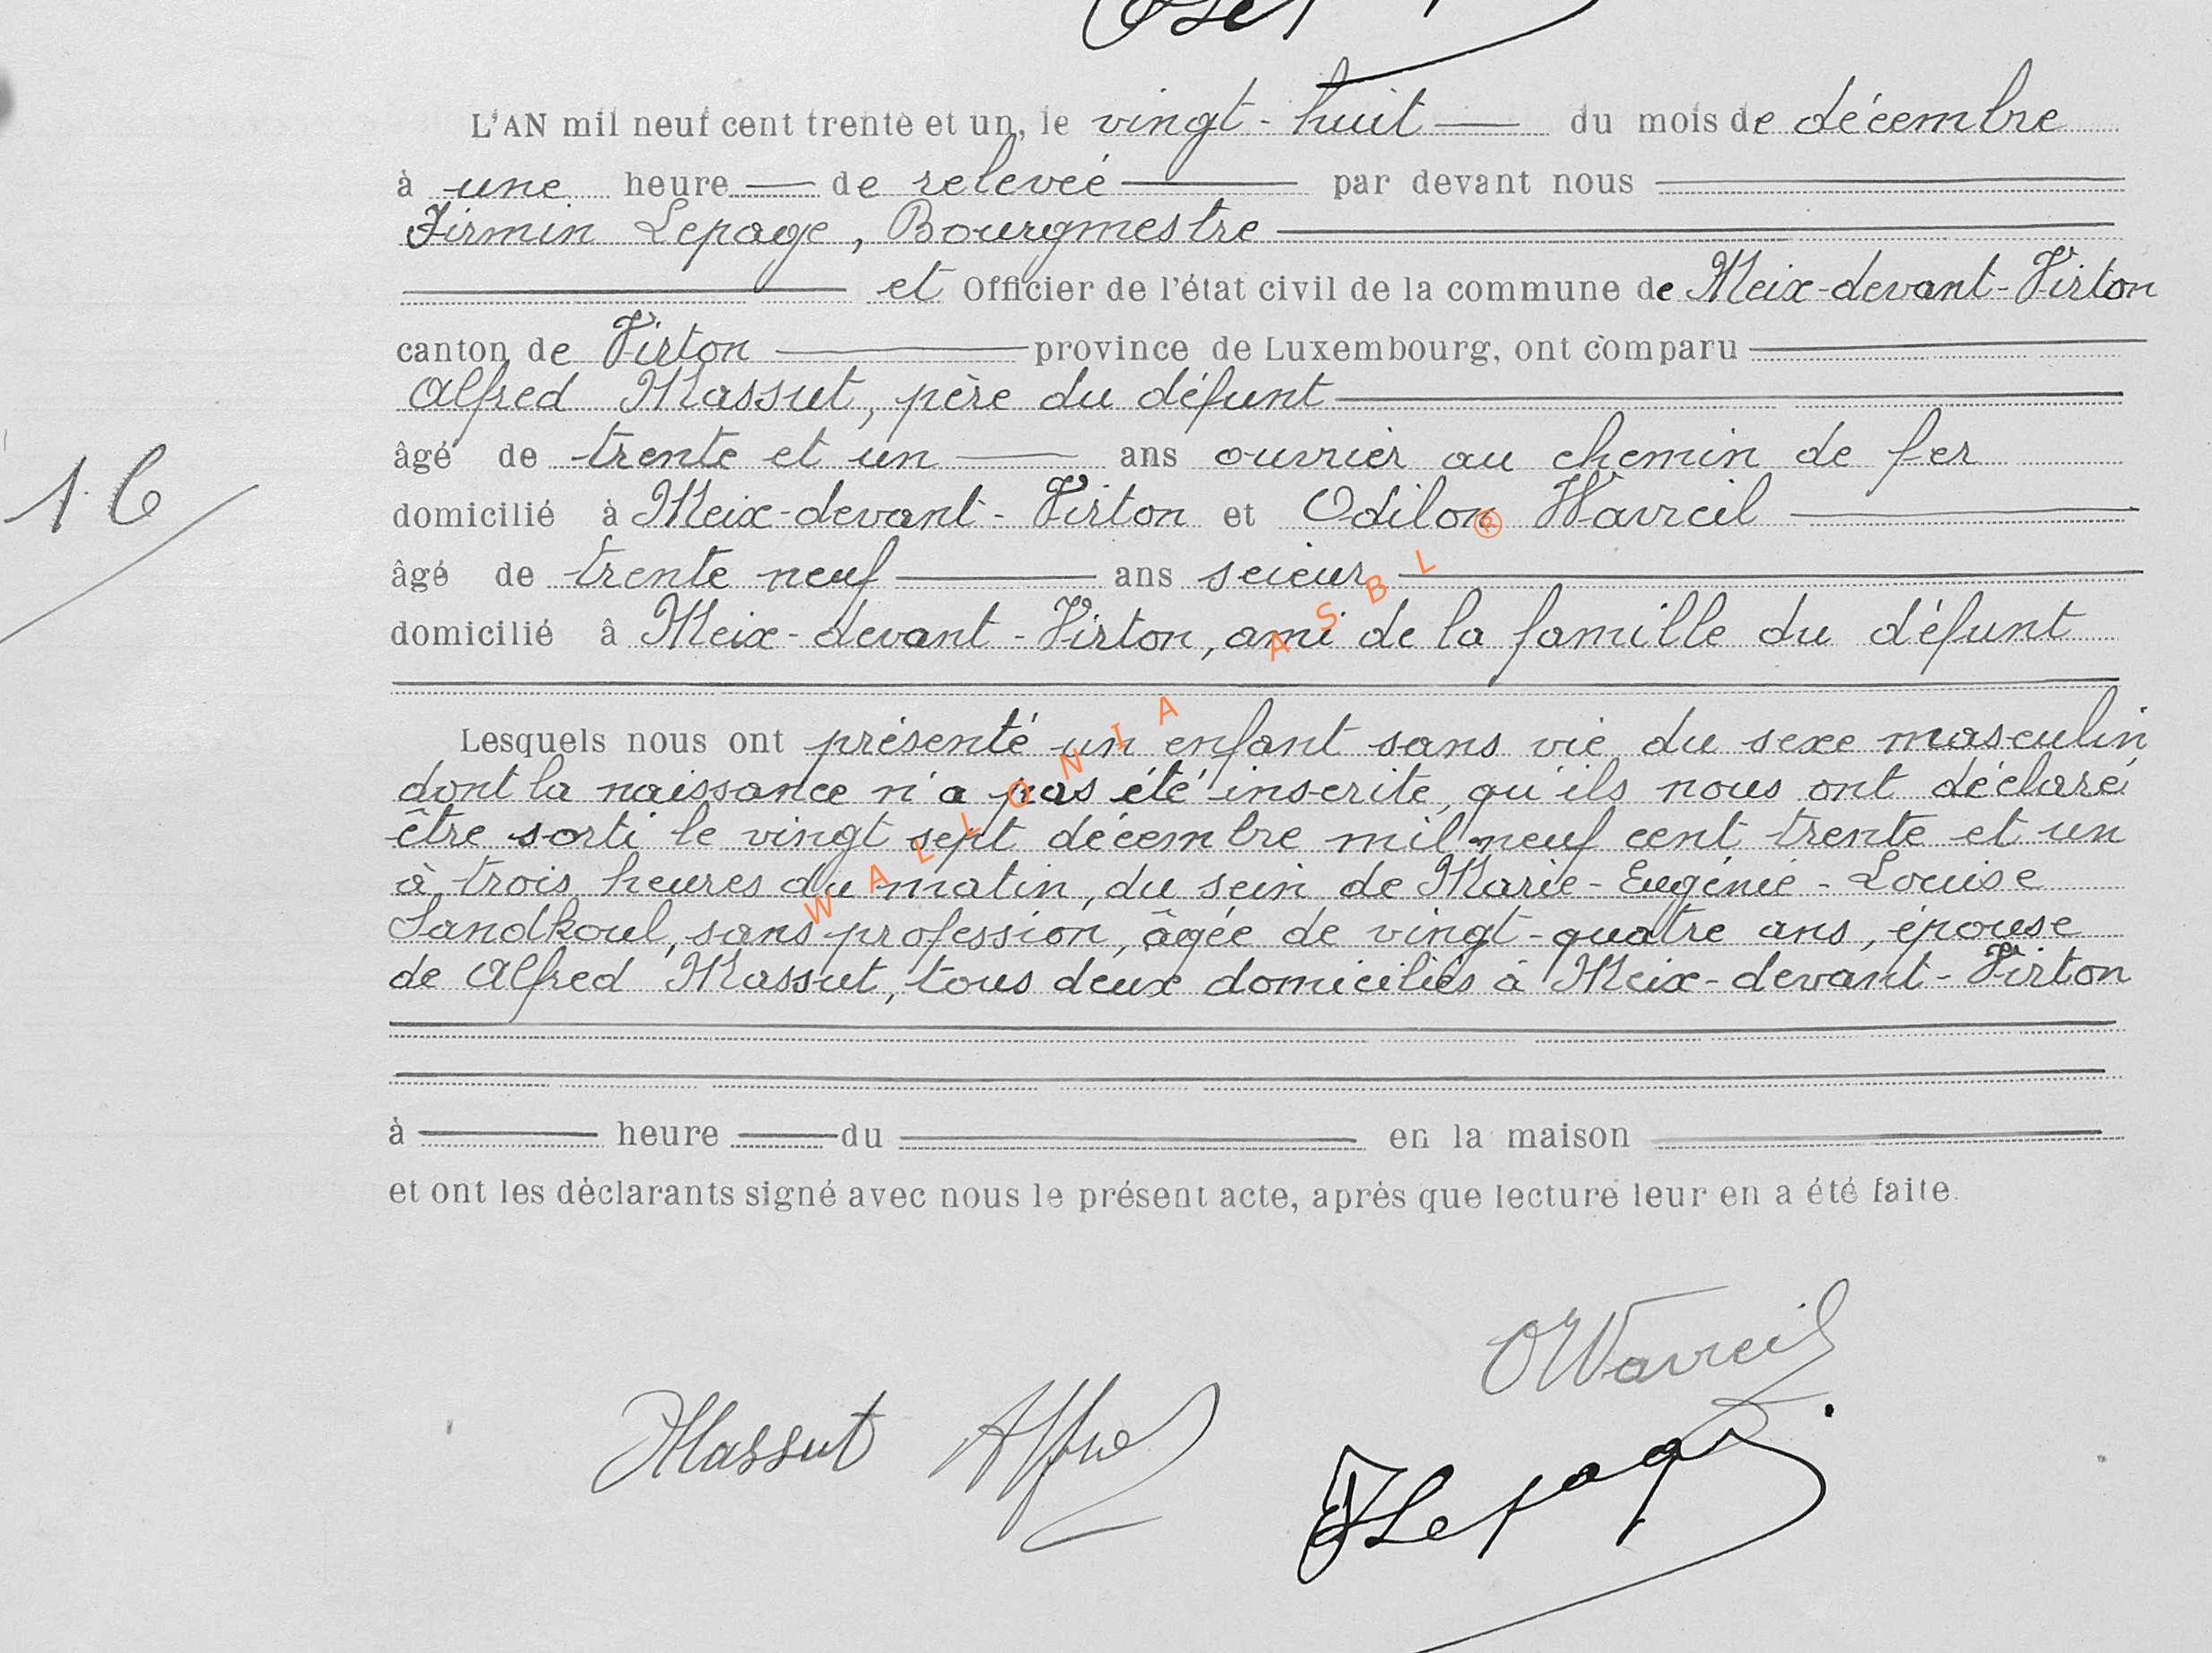 L'AN mil neuf cent trente et un, le vingt-huit du mois de décembre
à une heure de relevée par devant nous
Firmin Lepage, Bourgmestre
et Officier de l'état civil de la commune de Meix-devant-Virton
canton de Virton province de Luxembourg, ont comparu
Alfred Massut, père du défunt
âgé de trente et un ans ouvrier au chemin de fer
16
domicilié à Meix-devant-Virton et Odilon Wavreil
âgé de trente neuf ans scieur
domicilié à Meix-devant-Virton, ami de la famille du défunt
Lesquels nous ont présenté un enfant sans vie du sexe masculin,
dont la naissance n'a pas été inscrite, qu'ils nous ont déclaré
être sorti le vingt sept décembre mil neuf cent trente et un
à trois heures du matin, du sein de Marie-Eugénie-Louise
Sandkoul, sans profession, âgée de vingt-quatre ans, épouse
de Alfred Massut, tous deux domiciliés à Meix-devant-Virton
à heure du en la maison
et ont les déclarants signé avec nous le présent acte, après que lecture leur en a été faite.
OWavreil
Massut Alfred
FLepage
WALLONIA ASBL ®